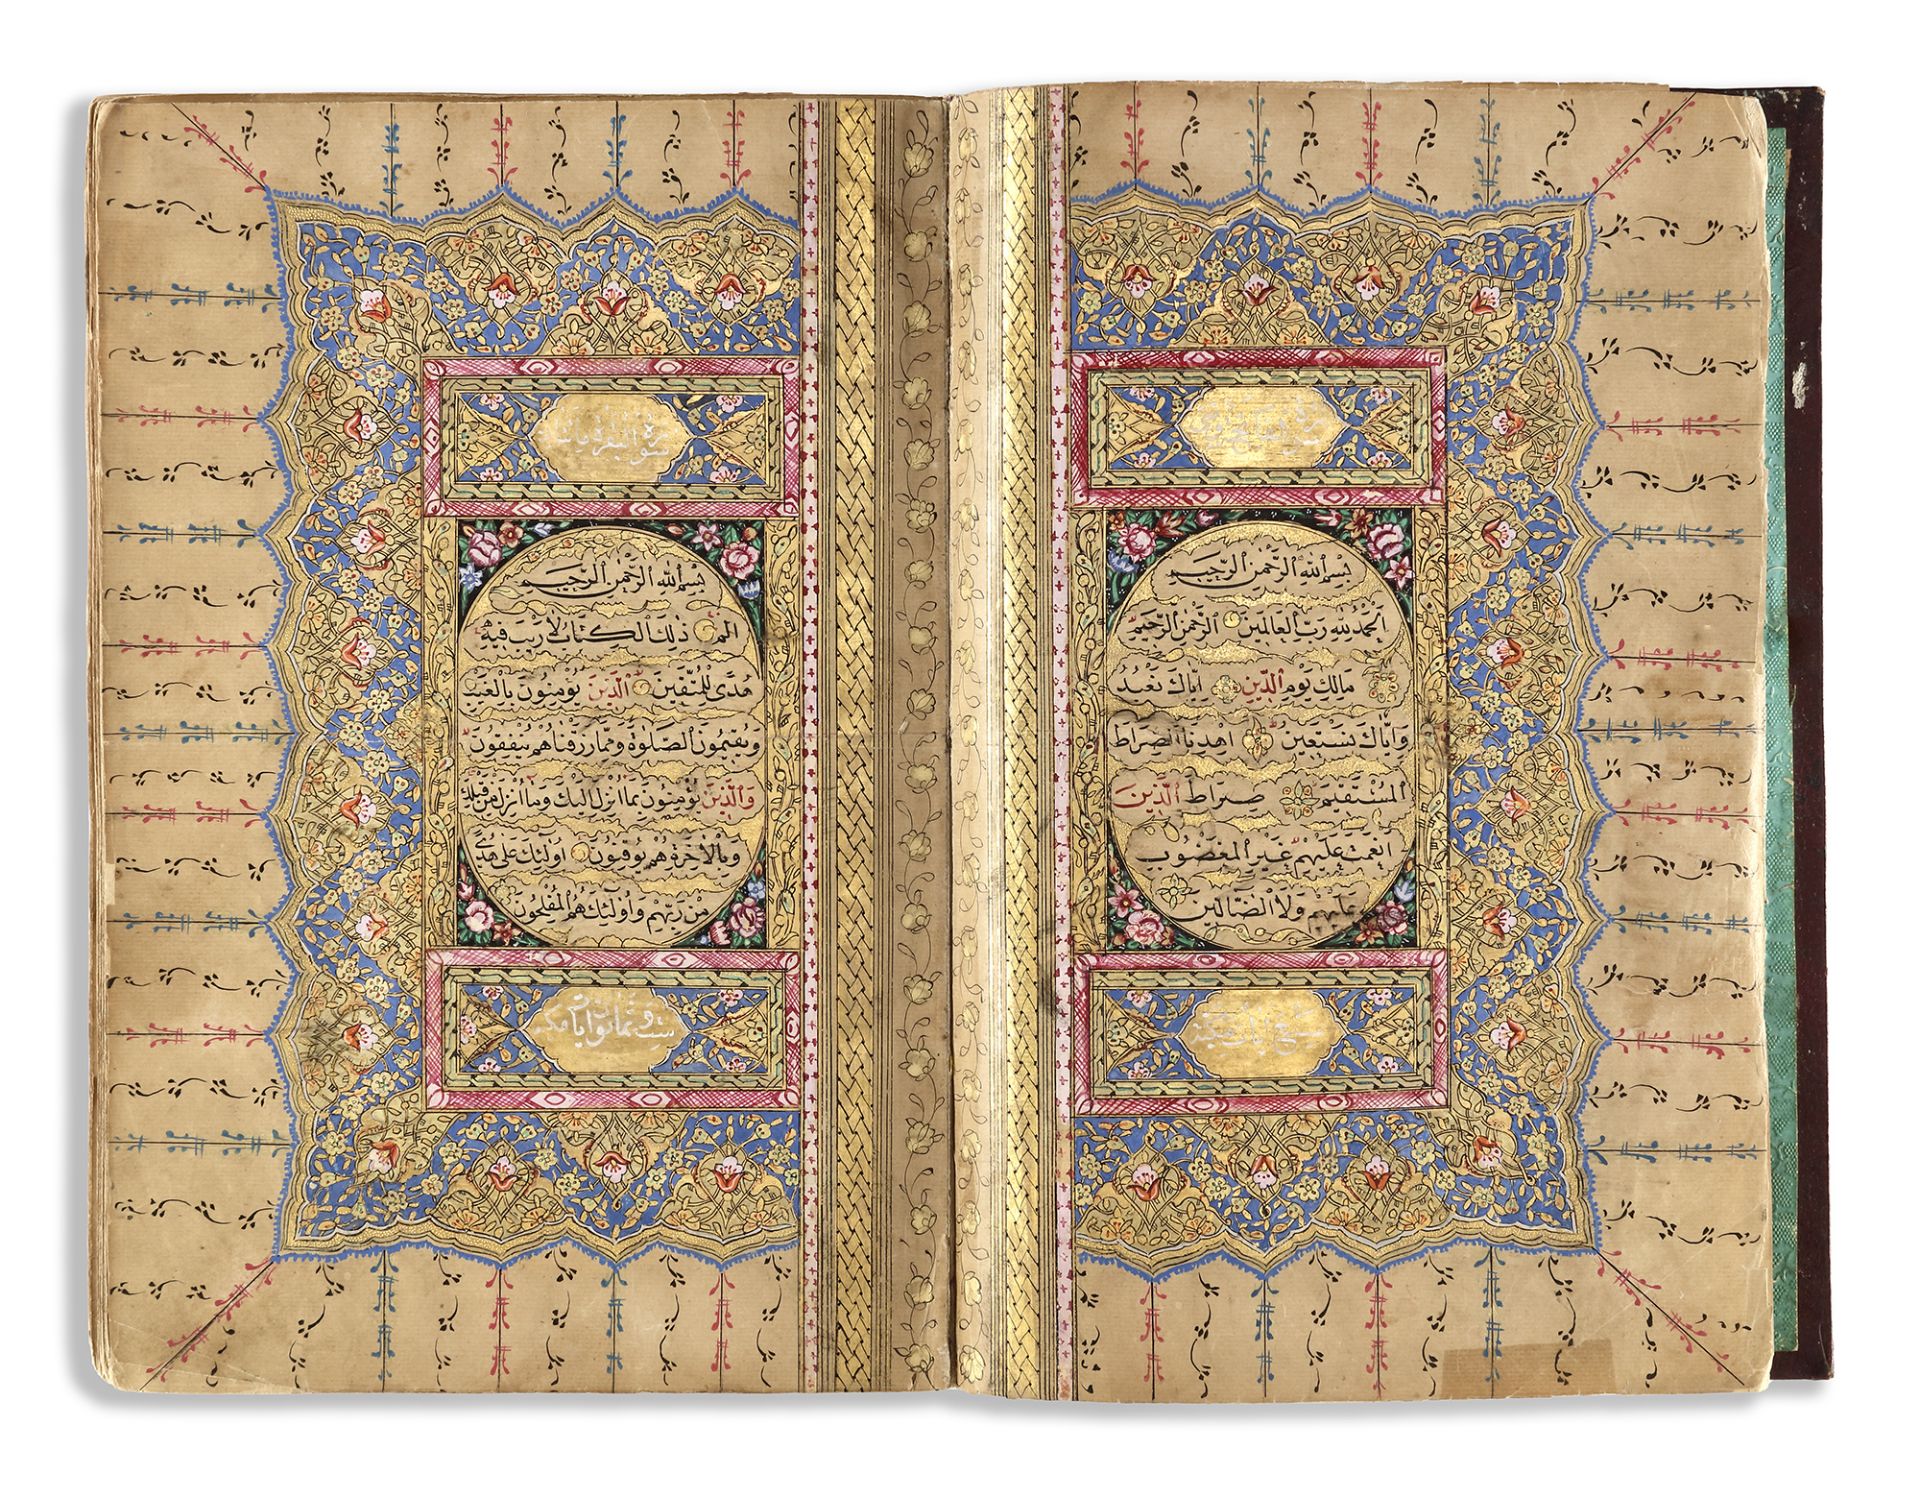 سورة فاتحة
بسم الله الرحمن الرحيم
الحمد لله رب العالمين الرحمن الرحيم
مالك يوم الدين اياك نعبد
واياك نستعين اهدنا الصراط
المستقيم صراط الذين
انعمت عليهم غير المغضوب
عليهم ولا الضالين
سبع ايات
سورة البقرة مائتان
بسم الله الرحمن الرحيم
الم ذلك الكتاب لا ريب فيه
هدى للمتقين الذين يؤمنون بالغيب
ويقيمون الصلوة ومما رزقناهم ينفقون
والذين يؤمنون بما انزل اليك وما انزل من قبلك
وبالاخرة هم يوقنون اولئك على هدى
من ربهم واولئك هم المفلحون
ست وثمانون ايات